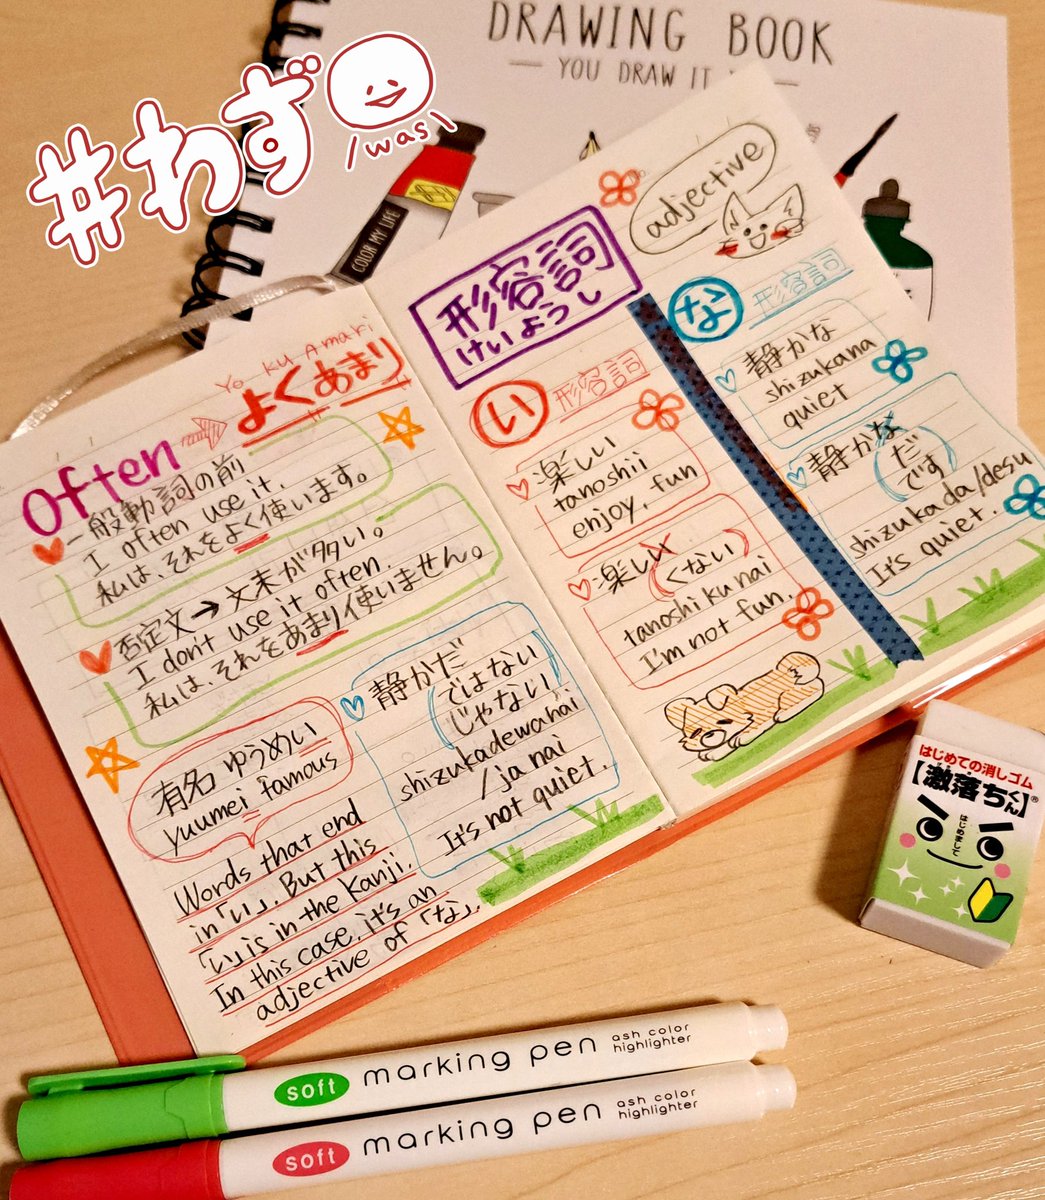 #わず
/was\
DRAWING BOOK
YOU DRAW IT
COLOR MY LIFE
Yo ku Amari
often → よくあまり
一般動詞の前
I often use it.
私は、それをよく使います。
否定文→文末が多い。
I don't use it often.
私は、それをあまり使いません。
有名 ゆうめい
yuumei famous
Words that end
in「い」. But this
「い」is in the Kanji.
In this case, it's an
adjective of「な」.
静かだ
ではない
じゃない
shizukadewanai
/ja nai
It's not quiet.
adjective
形容詞
けいようし
い 形容詞
楽しい
tanoshii
enjoy. fun
楽しい
くない
tanoshi ku nai
I'm not fun.
な 形容詞
静かな
shizukana
quiet
静かな
だ
です
shizukada/desu
It's quiet.
はじめての消しゴム
【激落ちくん】®
はじめまして
soft marking pen ash color
highlighter
soft marking pen ash color
highlighter